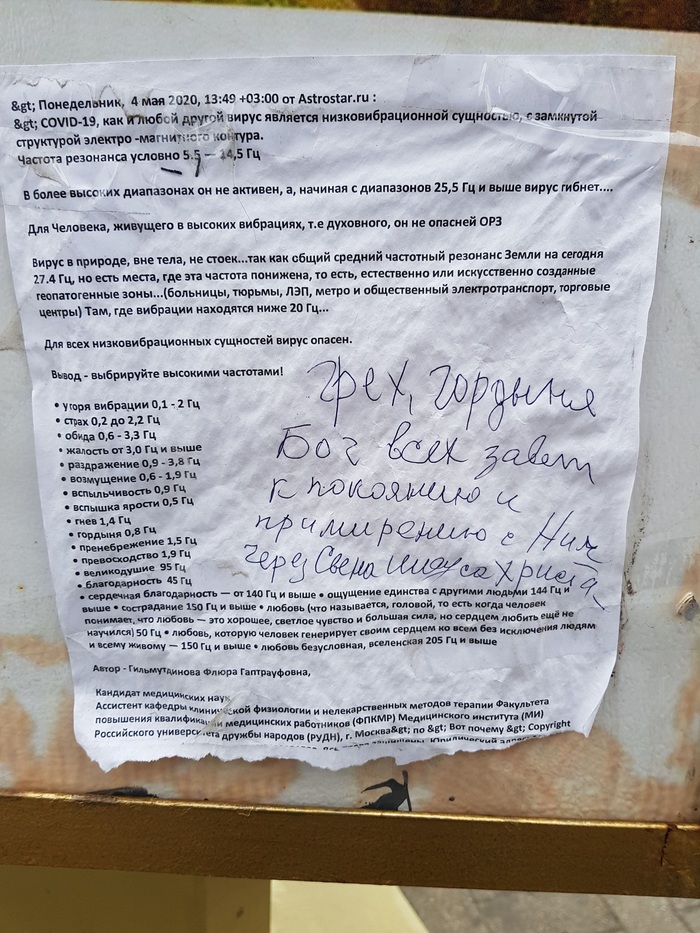 &gt; Понедельник, 4 мая 2020, 13:49 +03:00 от Astrostar.ru :
&gt; COVID-19, как и любой другой вирус является низковибрационной сущностью, с замкнутой
структурой электро -магнитного контура.
Частота резонанса условно 5.5 — 14,5 Гц
В более высоких диапазонах он не активен, а, начиная с диапазонов 25,5 Гц и выше вирус гибнет....
Для Человека, живущего в высоких вибрациях, т.е духовного, он не опасней ОРЗ
Вирус в природе, вне тела, не стоек...так как общий средний частотный резонанс Земли на сегодня
27.4 Гц, но есть места, где эта частота понижена, то есть, естественно или искусственно созданные
геопатогенные зоны...(больницы, тюрьмы, ЛЭП, метро и общественный электротранспорт, торговые
центры) Там, где вибрации находятся ниже 20 Гц...
Для всех низковибрационных сущностей вирус опасен.
Вывод - выбрируйте высокими частотами!
• угоря вибрации 0,1 - 2 Гц
• страх 0,2 до 2,2 Гц
• обида 0,6 - 3,3 Гц
• жалость от 3,0 Гц и выше
• раздражение 0,9 - 3,8 Гц
• возмущение 0,6 - 1,9 Гц
• вспыльчивость 0,9 Гц
• вспышка ярости 0,5 Гц
• гнев 1,4 Гц
• гордыня 0,8 Гц
• пренебрежение 1,5 Гц
• превосходство 1,9 Гц
• великодушие 95 Гц
• благодарность 45 Гц
Грех, гордыня
Бог всех зовет
к покоянию и
примирению с Ним
через Сына Иисуса Христа
• сердечная благодарность — от 140 Гц и выше • ощущение единства с другими людьми 144 Гц и
выше • сострадание 150 Гц и выше • любовь (что называется, головой, то есть когда человек
понимает, что любовь — это хорошее, светлое чувство и большая сила, но сердцем любить ещё не
научился) 50 Гц • любовь, которую человек генерирует своим сердцем ко всем без исключения людям
и всему живому — 150 Гц и выше • любовь безусловная, вселенская 205 Гц и выше
Автор - Гильмутдинова Флюра Гаптрауфовна,
Кандидат медицинских наук
Ассистент кафедры клинической физиологии и нелекарственных методов терапии Факультета
повышения квалификации медицинских работников (ФПКМР) Медицинского института (МИ)
Российского университета дружбы народов (РУДН), г. Москва&gt; по &gt; Вот почему &gt; Copyright